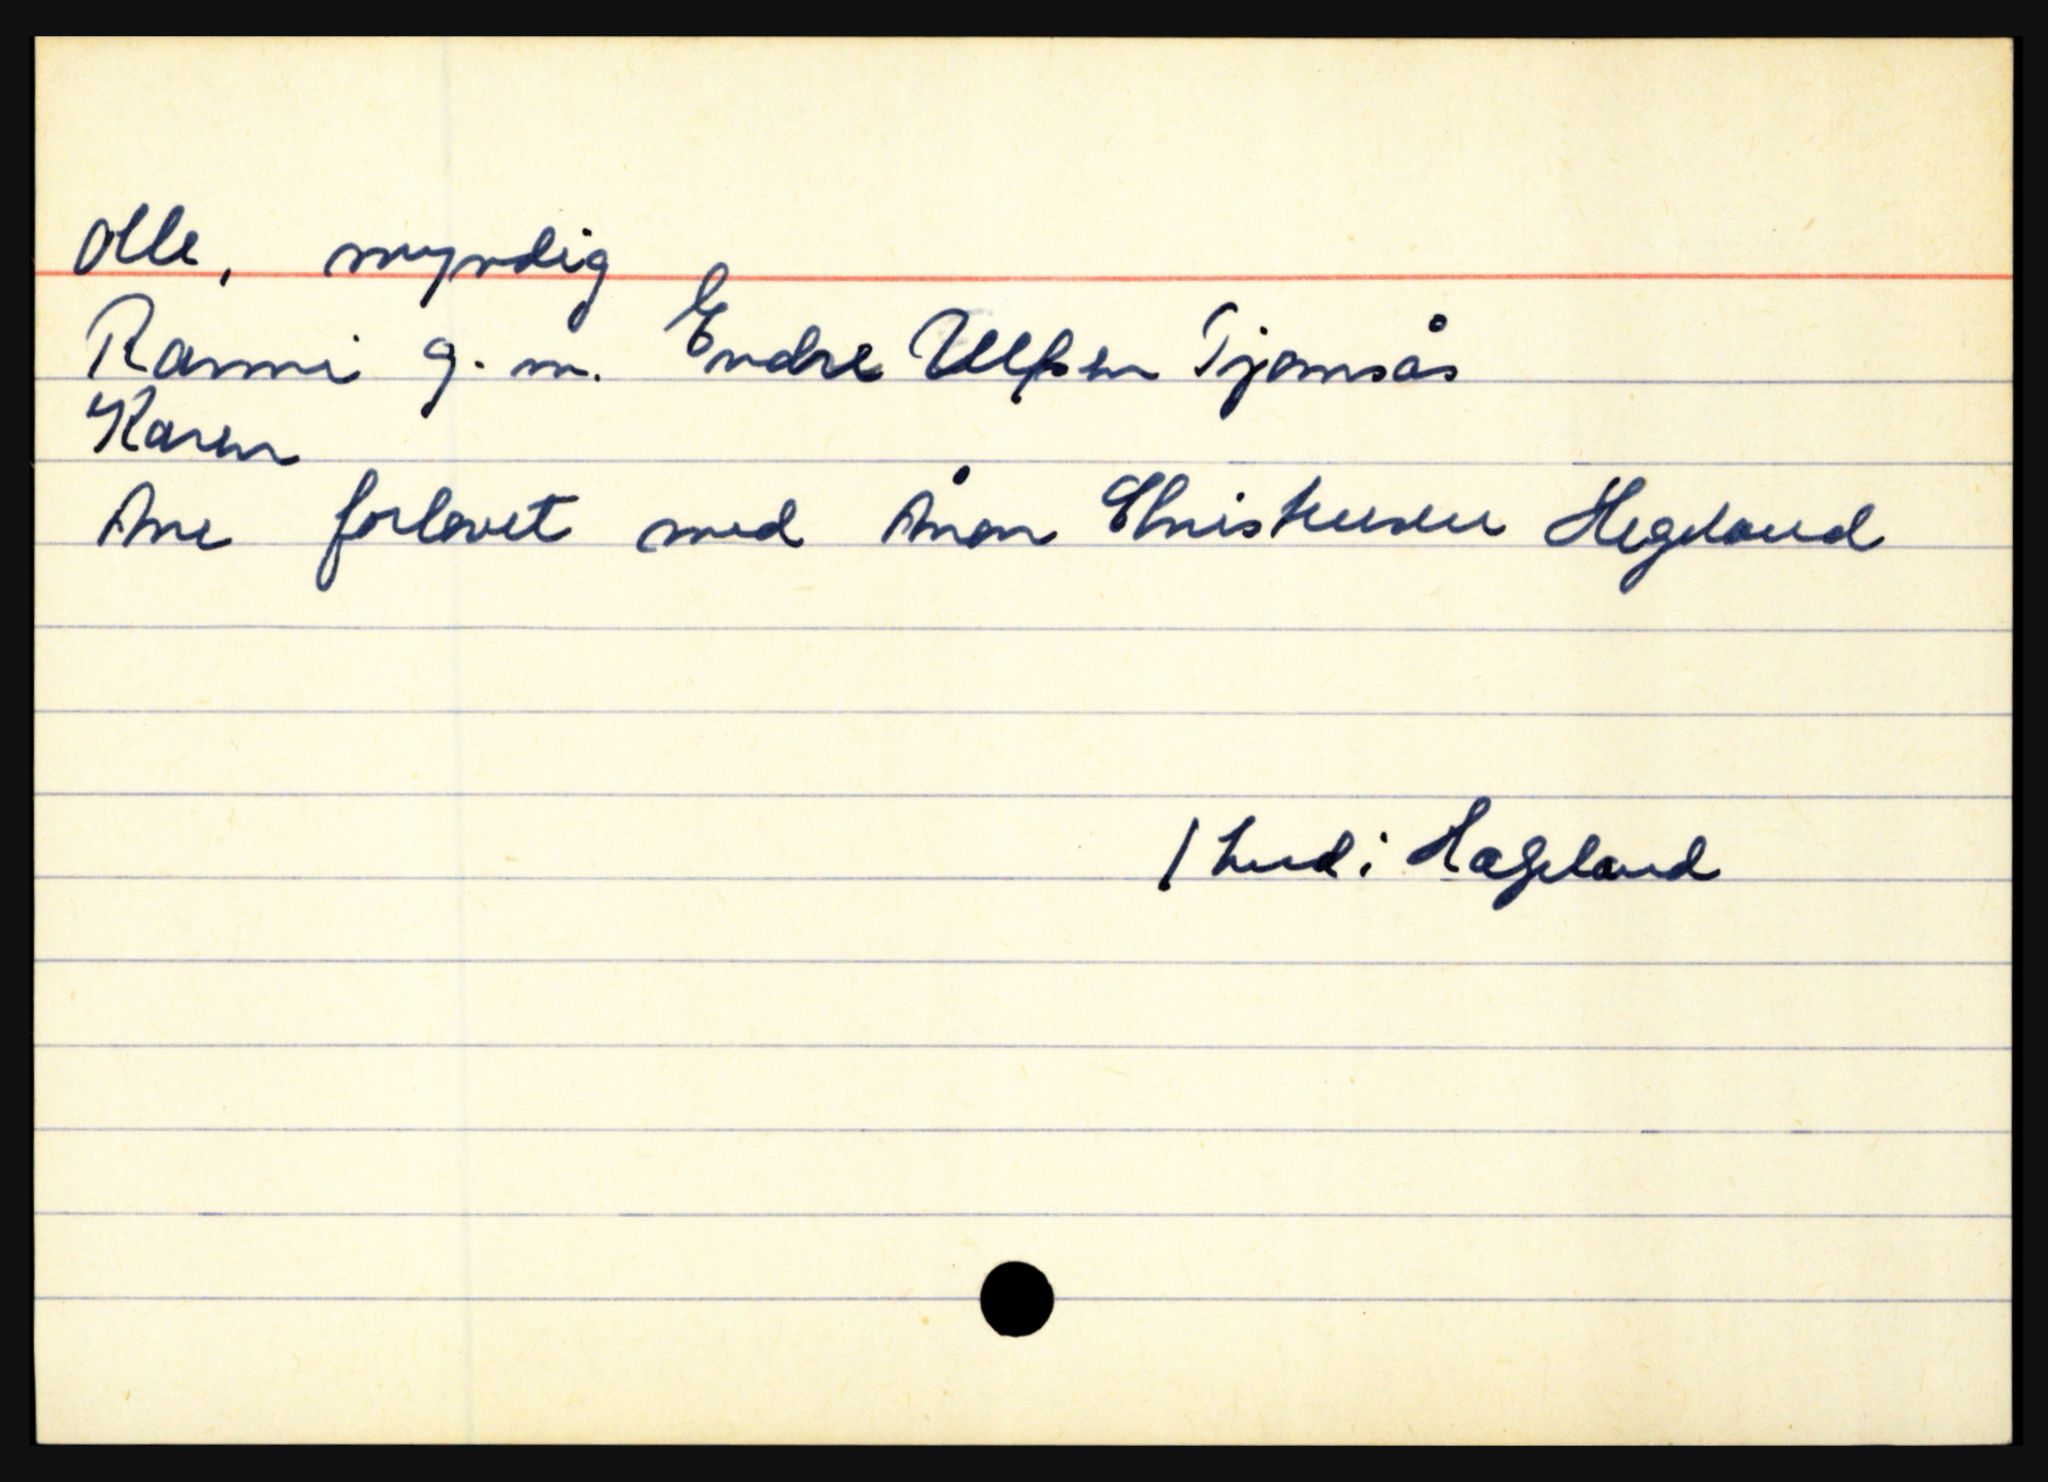 Olle, myndig
Ranni g. m. Endre Ulfsen Tjomsås
Karen
Ane forlovet med Ånon Christensen Hegeland
/ Lund i Hægeland